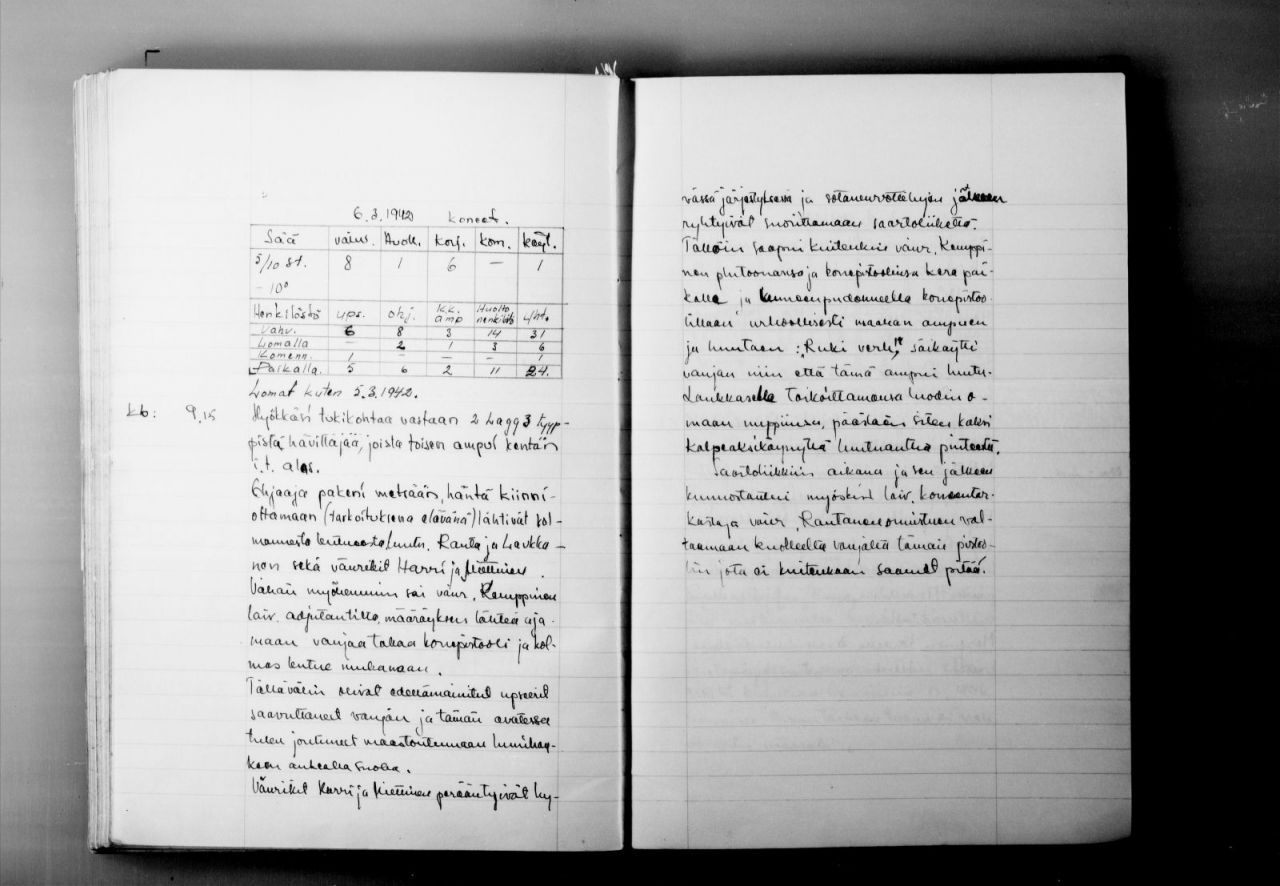 6.3.1942 Koneet.
Sää vahv. Huolt. Korj. kom. käyt.
5/10 st. 8 1 6 — 1
-10°
Henkilöstö ups. ohj. K.K. amp Huolto henkilöstö yht.
Vahv. 6 8 3 14 31
Lomalla — 2 1 3 6
Komenn. 1 — — — 1
Paikalla. 5 6 2 11 24.
Lomat kuten 5.3.1942.
9,15 Hyökkäsi tukikohtaa vastaan 2 Lagg 3 tyyp-
pistä hävittäjää, joista toisen ampui kentän
i.t. alas.
Ohjaaja pakeni metsään, häntä kiinni-
ottamaan (tarkoituksena elävänä) lähtivät kol-
mannesta lentueesta Luutn. Ranta ja Laukka-
nen sekä vänrikit Harri ja Miettinen.
Vähän myöhemmin sai vänr. Kemppinen
laiv. adjutantilta, määräyksen lähteä aja-
maan vanjaa takaa konepistooli ja kol-
mas lentue mukanaan.
Tällävälin olivat edellämainitut upseerit
saavuttaneet vanjan ja tämän avatessa
tulen joutuneet maastoutumaan lumihan-
keen aukealla suolla.
Vänrikit Harri ja Miettinen perääntyivät hy-
vässä järjestyksessä ja sotaneuvottelujen jälkeen
ryhtyivät suorittamaan saartoliikettä.
Tällöin saapui kuitenkin vänr. Kemppi-
nen plutoonansa ja konepistoolinsa kera pai-
kalle ja lumeenpudonneella konepistoo-
lillaan urhoollisesti maahan ampuen
ja huutaen: "Ruki verh" säikäytti
vanjan niin että tämä ampui luutn.
Laukkaselle tarkoittamansa luodin o-
maan nuppiinsa, päästäen siten kaksi
kalpeaksikäynyttä luutnanttia pinteestä.
Saartoliikkeen aikana ja sen jälkeen
kunnostautui myöskin laiv. koneentar-
kastaja vänr. Rantanen onnistuen val-
taamaan kuolleelta vanjalta tämän pistoo-
lin jota ei kuitenkaan saanut pitää.